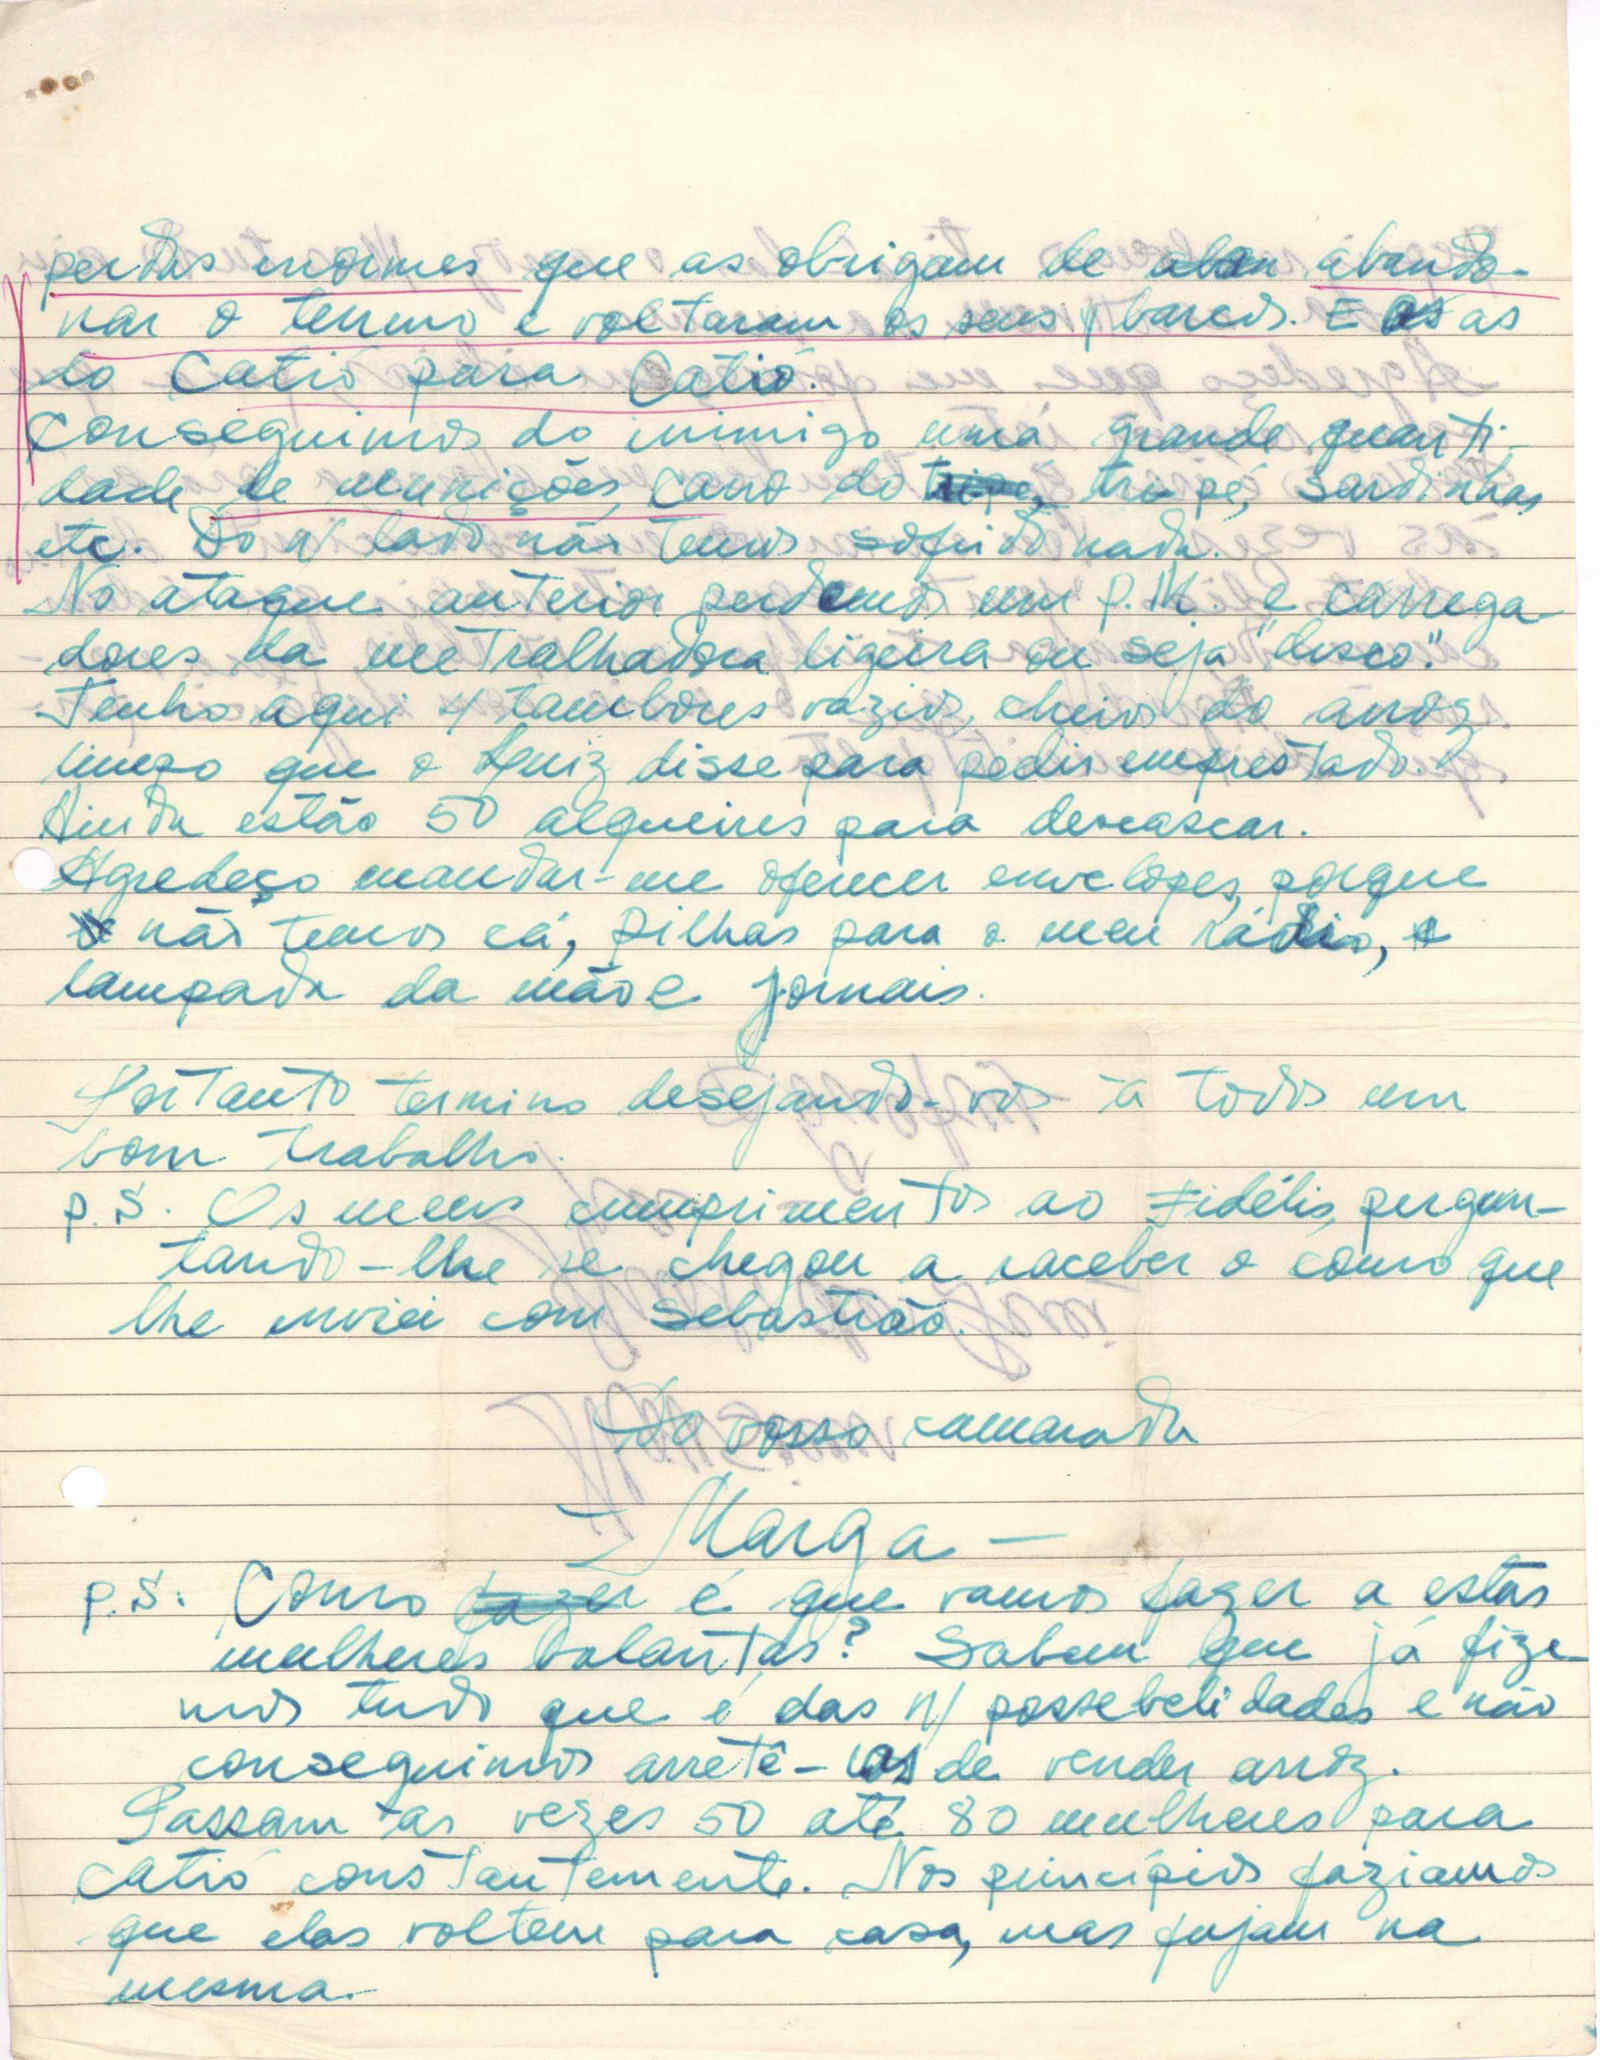 perdas enormes que as obrigam de abando-
nar o terreno e voltaram os seus barcos. E as
do Catió para Catió.
Conseguimos do inimigo uma grande quanti-
dade de munições, cano do tripé, sardinhas
etc. Do n/ lado não temos sofrido nada.
No ataque anterior perdemos um P.M. e carrega-
dores da metralhadora ligeira ou seja "disco".
Tenho aqui 4 tambores vazios, cheios do arroz
limpo que o Luiz disse para pedir emprestado.
Ainda estão 50 alqueires para descascar.
Agredeço mandar-me oferecer envelopes, porque
não temos cá, pilhas para o meu rádio,
lampada da mão e jornais.
Portanto termino desejando-vos à todos um
bom trabalho.
P.S. Os meus cumprimentos ao Fidélis, pergun-
tando-lhe se chegou a receber o couro que
lhe enviei com Sebastião.
Do vosso camarada
- Marga -
P.S. Como fazer é que vamos fazer a estas
mulheres balantas? Sabem que já fize-
mos tudo que é das n/ possebelidades e não
conseguimos arretê-las de vender arroz.
Passam às vezes 50 até 80 mulheres para
Catió constantemente. Nos princípios faziamos
que elas voltem para casa, mas fujam na
mesma.